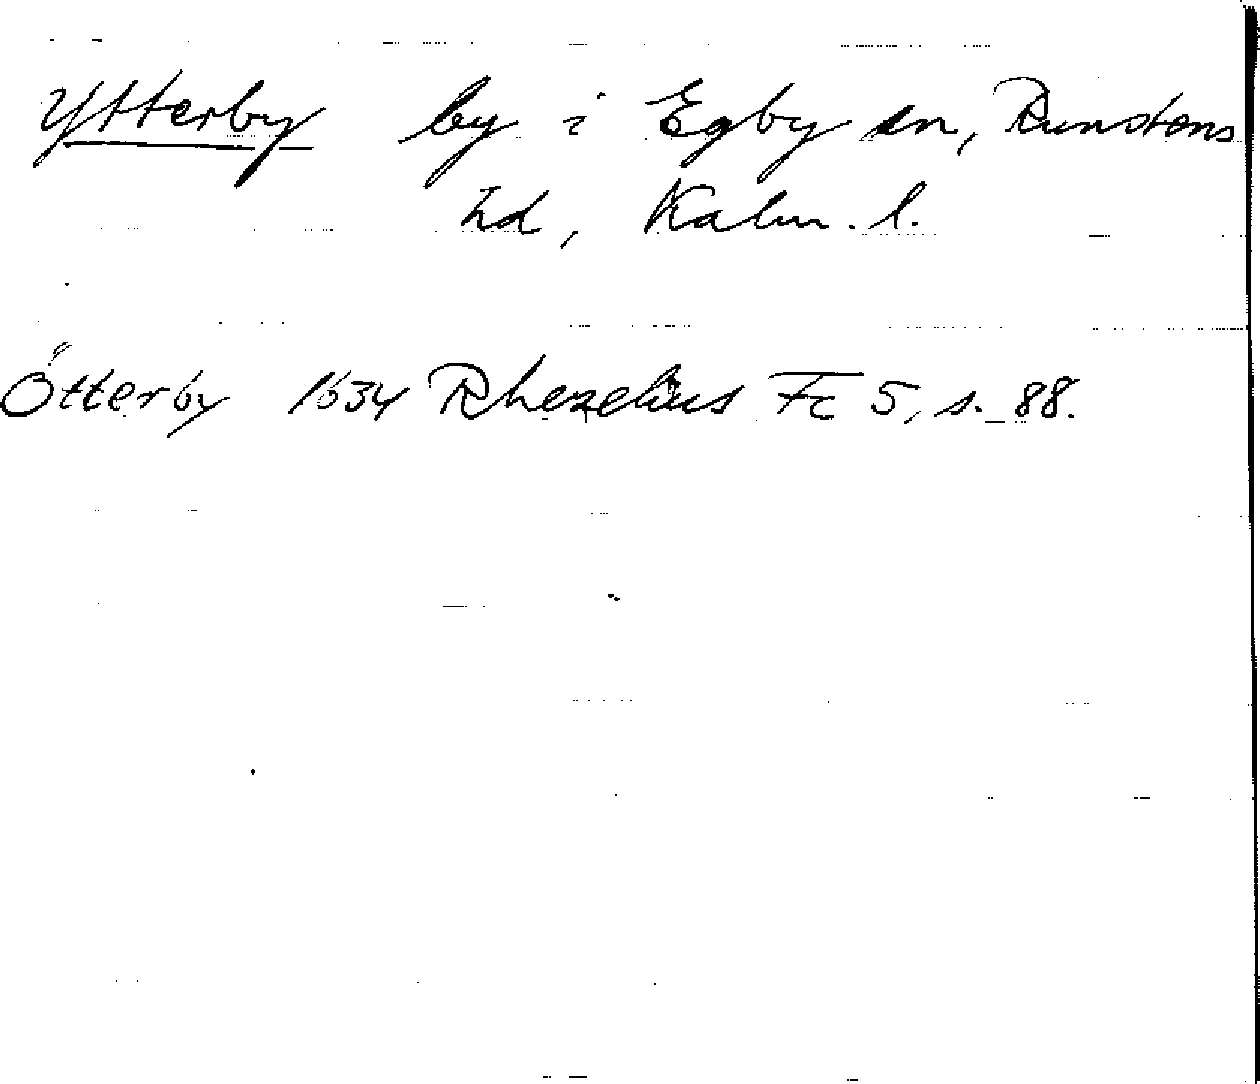 Ytterby by i Egby sn, Runstens
hd, Kalm. l.
Ötterby 1634 Rhezelius Fc 5, s. 88.